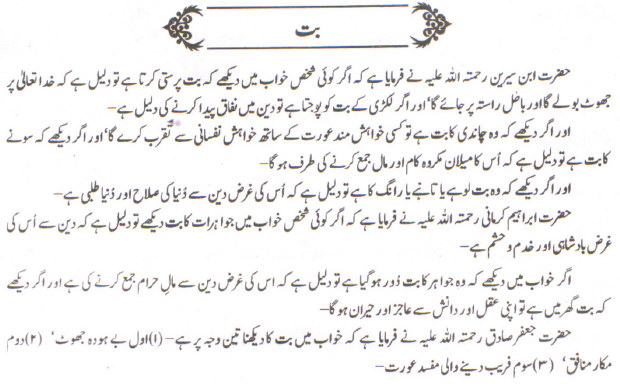 بت
حضرت ابن سیرین رحمتہ اللہ علیہ نے فرمایا ہے کہ اگر کوئی شخص خواب میں دیکھے کہ بت پرستی کرتا ہے تو دلیل ہے کہ خدا تعالیٰ پر
جھوٹ بولے گا اور باطل راستہ پر جائے گا' اور اگر لکڑی کے بت کو پوجتا ہے تو دین میں نفاق پیدا کرنے کی دلیل ہے–
اور اگر دیکھے کہ وہ چاندی کا بت ہے تو کسی خواہش مند عورت کے ساتھ خواہش نفسانی سے تقرب کرے گا' اور اگر دیکھے کہ سونے
کا بت ہے تو دلیل ہے کہ اُس کا میلان مکروہ کام اور مال جمع کرنے کی طرف ہو گا–
اور اگر دیکھے کہ وہ بت لوہے یا تانبے یا رانگ کا ہے تو دلیل ہے کہ اُس کی غرض دین سے دُنیا کی صلاح اور دُنیا طلبی ہے–
حضرت ابراہیم کرمانی رحمتہ اللہ علیہ نے فرمایا ہے کہ اگر کوئی شخص خواب میں جواہرات کا بت دیکھے تو دلیل ہے کہ دین سے اُس کی
غرض بادشاہی اور خدم و حشم ہے–
اگر خواب میں دیکھے کہ وہ جواہر کا بت دُور ہو گیا ہے تو دلیل ہے کہ اس کی غرض دین سے مالِ حرام جمع کرنے کی ہے اور اگر دیکھے
کہ بت گھر میں ہے تو اپنی عقل اور دانش سے عاجز اور حیران ہو گا–
حضرت جعفر صادق رحمتہ اللہ علیہ نے فرمایا ہے کہ خواب میں بت کا دیکھنا تین وجہ پر ہے– (۱) اول بے ہودہ جھوٹ' (۲) دوم
مکار منافق' (۳) سوم فریب دینے والی مفسد عورت–